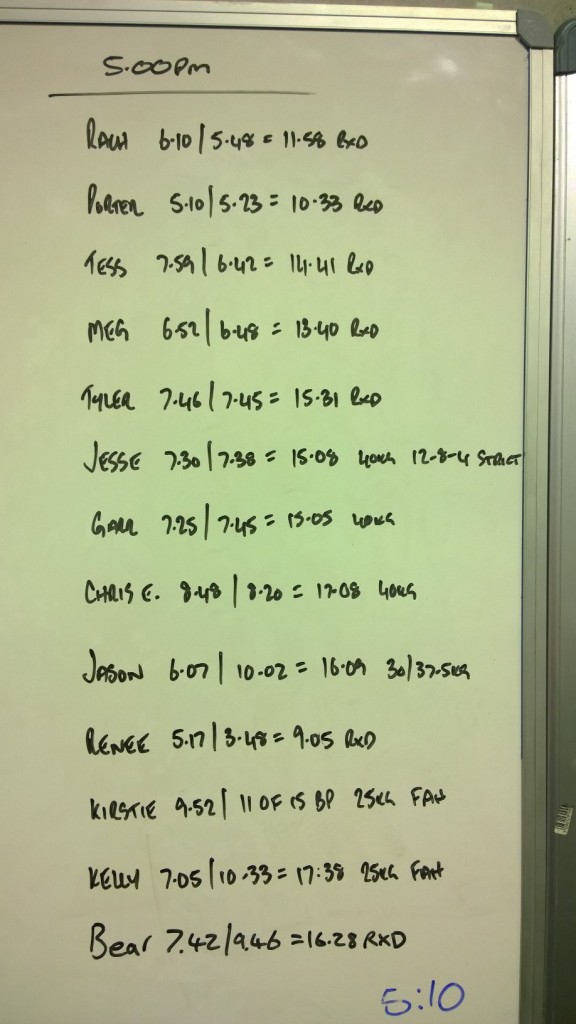 5.00pm
RACH 6.10 / 5.48 = 11.58 RXD
PORTER 5.10 / 5.23 = 10.33 RXD
TESS 7.59 / 6.42 = 14.41 RXD
MEG 6.52 / 6.48 = 13.40 RXD
TYLER 7.46 / 7.45 = 15.31 RXD
JESSE 7.30 / 7.38 = 15.08 40KG 12-8-4 STRICT
7.25 / 7.45 = 15.05 40KG
CHRIS E. 8.48 / 8.20 = 17.08 40KG
JASON 6.07 / 10.02 = 16.09 30/37.5KG
RENEE 5.17 / 3.48 = 9.05 RXD
KIRSTIE 9.52 / 11 OF 15 BP 25KG
KELLY 7.05 / 10.33 = 17:38 25KG
Bear 7.42 / 9.46 = 16.28 RXD
5:10